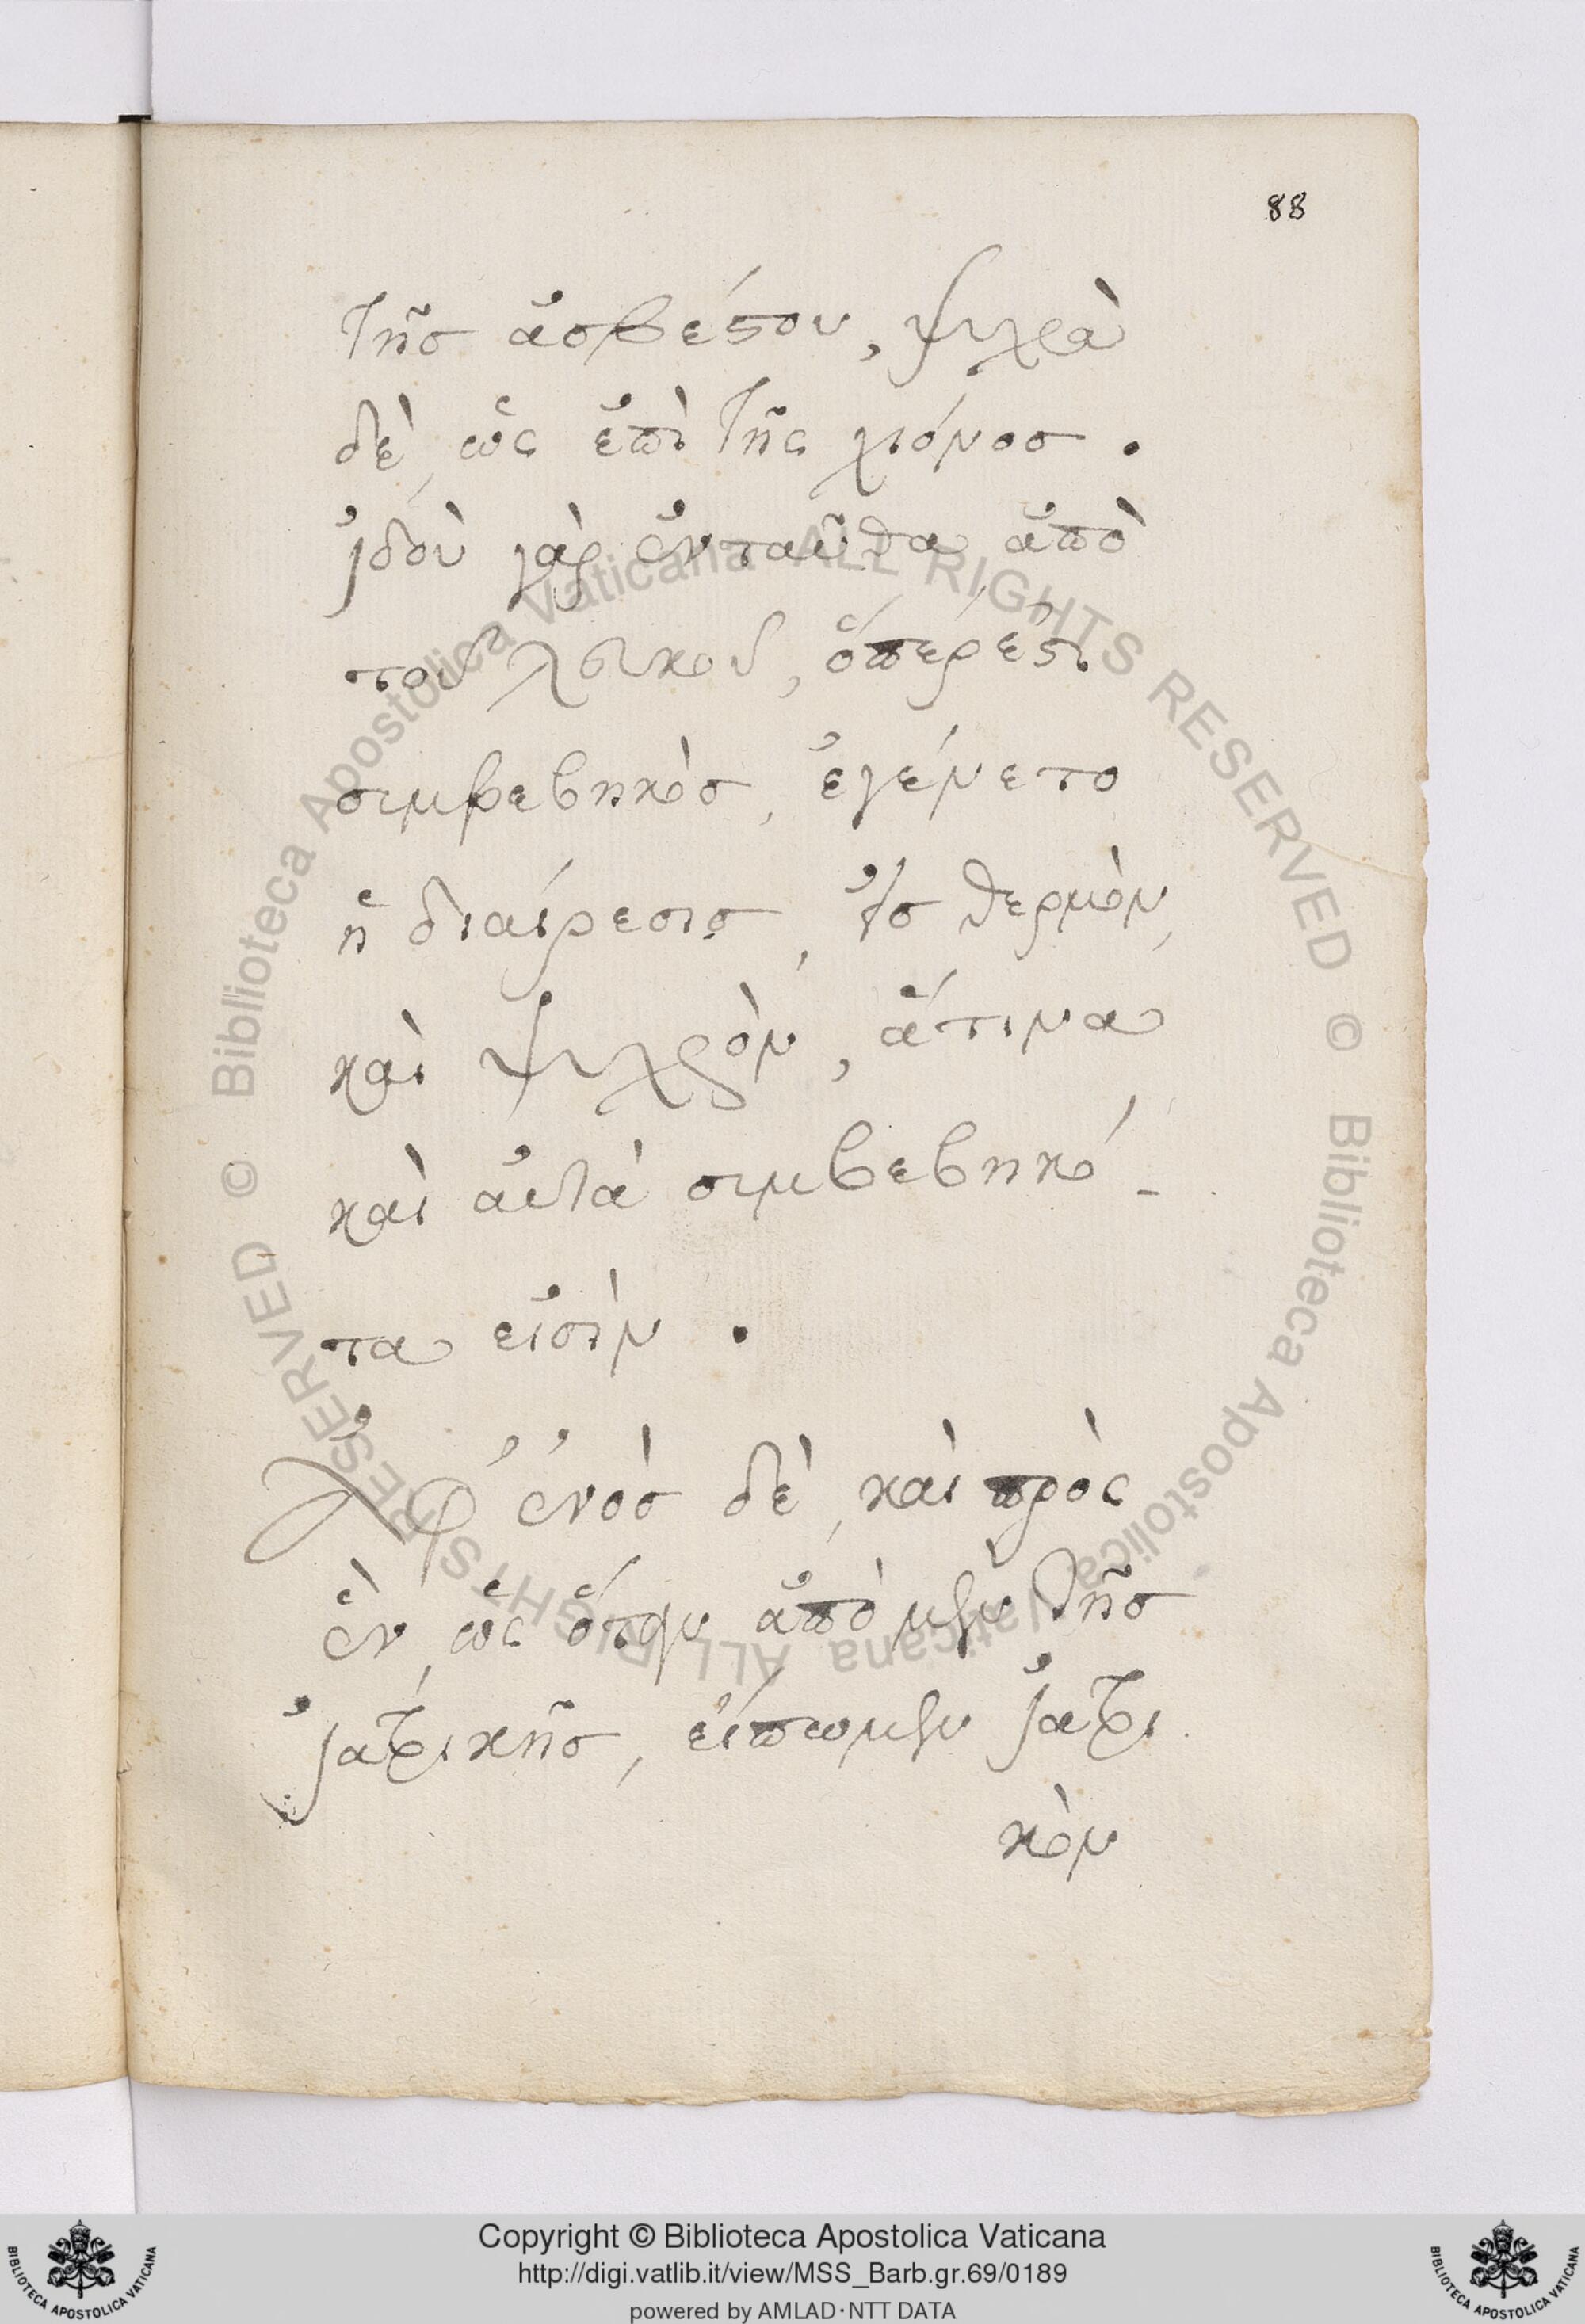 88
τῆσ ἀσβέστου, ψυχρὰ
δὲ, ὡς ἐπὶ τῆς χιόνοσ .
ἰδοὺ γὰρ ἐνταῦθα ἀπὸ
τοῦ λευκοῦ, ὅπερ ἐστὶ
συμβεβηκὸσ, ἐγένετο
ἡ διαίρεσισ, εἰσ θερμὸν,
καὶ ψυχρὸν, ἅτινα
καὶ αὐτὰ συμβεβηκό-
τα εἰσὶν .
Ἀφ ἑνὸσ δὲ, καὶ πρὸς
ἓν, ὡς ὅταν ἀπὸ μὲν τῆσ
ἰατρικῆσ, εἴπωμεν ἰατρι
κὸν
Biblioteca Apostolica Vaticana ALL RIGHTS RESERVED ©
Biblioteca Apostolica Vaticana ALL RIGHTS RESERVED ©
Copyright © Biblioteca Apostolica Vaticana
http://digi.vatlib.it/view/MSS_Barb.gr.69/0189
powered by AMLAD·NTT DATA
BIBLIOTECA APOSTOLICA VATICANA
BIBLIOTECA APOSTOLICA VATICANA